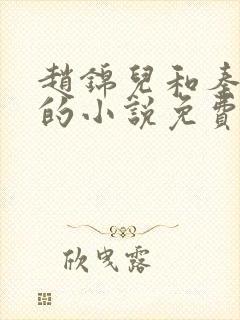 趙錦兒和秦
的小說免費
欣曳露